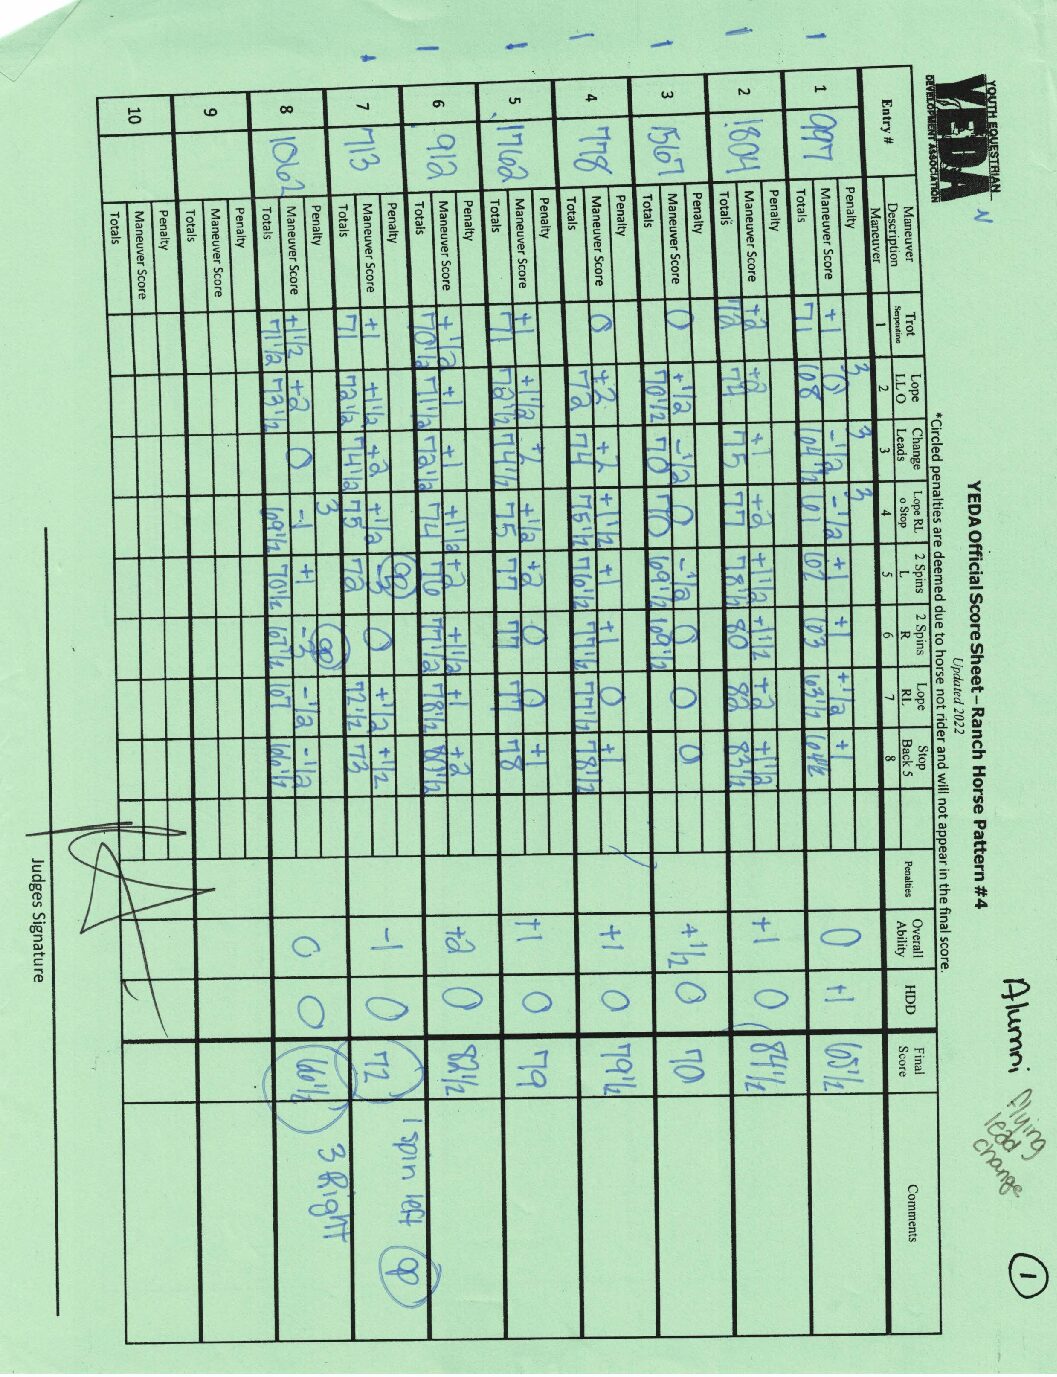 YOUTH EQUESTRIAN
YEDA
DEVELOPMENT ASSOCIATION
N
YEDA Official Score Sheet – Ranch Horse Pattern #4
Updated 2022
*Circled penalties are deemed due to horse not rider and will not appear in the final score.
Alumni
flying
lead
change
1
Entry # Maneuver Description Trot Serpentine Lope LL O Change Leads Lope RL o Stop 2 Spins L 2 Spins R Lope RL Stop Back 5 Penalties Overall Ability HDD Final Score Comments
Maneuver 1 2 3 4 5 6 7 8
1 997 Penalty 3 3 3
Maneuver Score +1 0 -1/2 -1/2 +1 +1 +1/2 +1 0 +1 65 1/2
Totals 71 68 64 1/2 61 62 63 63 1/2 64 1/2
2 1804 Penalty
Maneuver Score +2 +2 +1 +2 +1 1/2 +1 1/2 +2 +1 1/2 +1 0 84 1/2
Totals 72 74 75 77 78 1/2 80 82 83 1/2
3 1567 Penalty
Maneuver Score 0 +1/2 -1/2 0 -1/2 0 0 0 +1/2 0 70
Totals 70 1/2 70 70 69 1/2 69 1/2
4 778 Penalty
Maneuver Score 0 +2 +2 +1 1/2 +1 +1 0 +1 +1 0 79 1/2
Totals 72 74 75 1/2 76 1/2 77 1/2 77 1/2 78 1/2
5 1762 Penalty
Maneuver Score +1 +1 1/2 +2 +1/2 +2 0 0 +1 +1 0 79
Totals 71 72 1/2 74 1/2 75 77 77 77 78
6 912 Penalty
Maneuver Score +1/2 +1 +1 +1 1/2 +2 +1 1/2 +1 +2 +2 0 82 1/2
Totals 70 1/2 71 1/2 72 1/2 74 76 77 1/2 78 1/2 80 1/2
7 713 Penalty OP
Maneuver Score +1 +1 1/2 +2 +1/2 -3 0 +1/2 +1/2 -1 0 72 1 spin left OP
Totals 71 72 1/2 74 1/2 75 72 72 1/2 73
8 1062 Penalty 3 OP
Maneuver Score +1 1/2 +2 0 -1 +1 -3 -1/2 -1/2 0 0 66 1/2 3 Right
Totals 71 1/2 73 1/2 69 1/2 70 1/2 67 1/2 67 66 1/2
9 Penalty
Maneuver Score
Totals
10 Penalty
Maneuver Score
Totals
Judges Signature